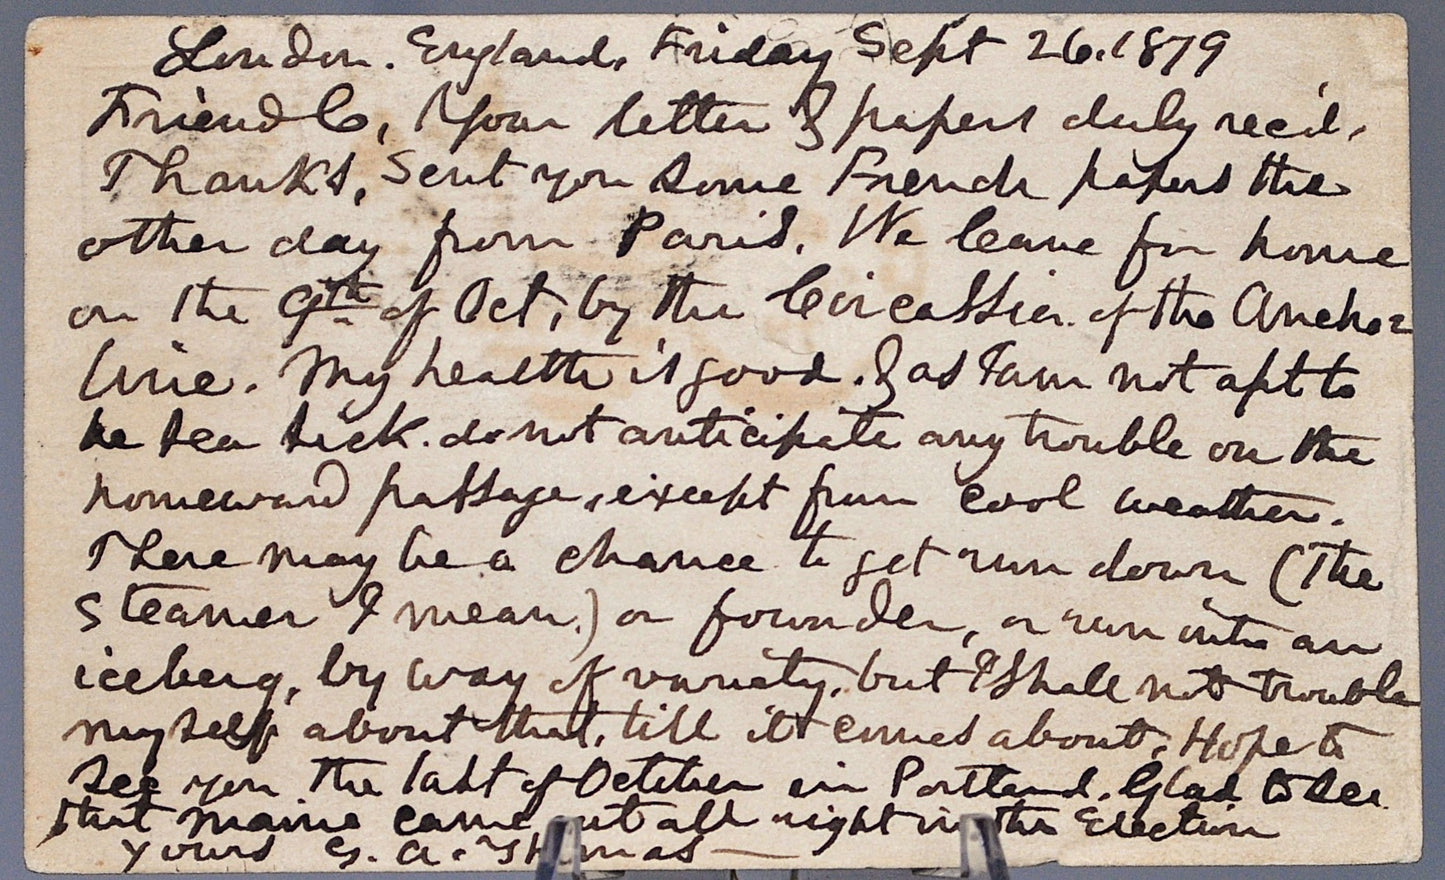 London. England, Friday Sept 26. 1879
Friend C, Your letter & papers duly rec'd.
Thanks, Sent you some French papers the
other day from Paris. We leave for home
on the 9th of Oct, by the Circassia of the Anchor
line. My health is good. & as I am not apt to
be sea sick. do not anticipate any trouble on the
homeward passage, except from cool weather.
There may be a chance to get run down (The
Steamer I mean.) or founder, or run into an
iceberg, by way of variety, but I shall not trouble
myself about that, till it comes about. Hope to
see you the last of October in Portland. Glad to see
that Maine came out all right in the Election
Yours G. A. Thomas